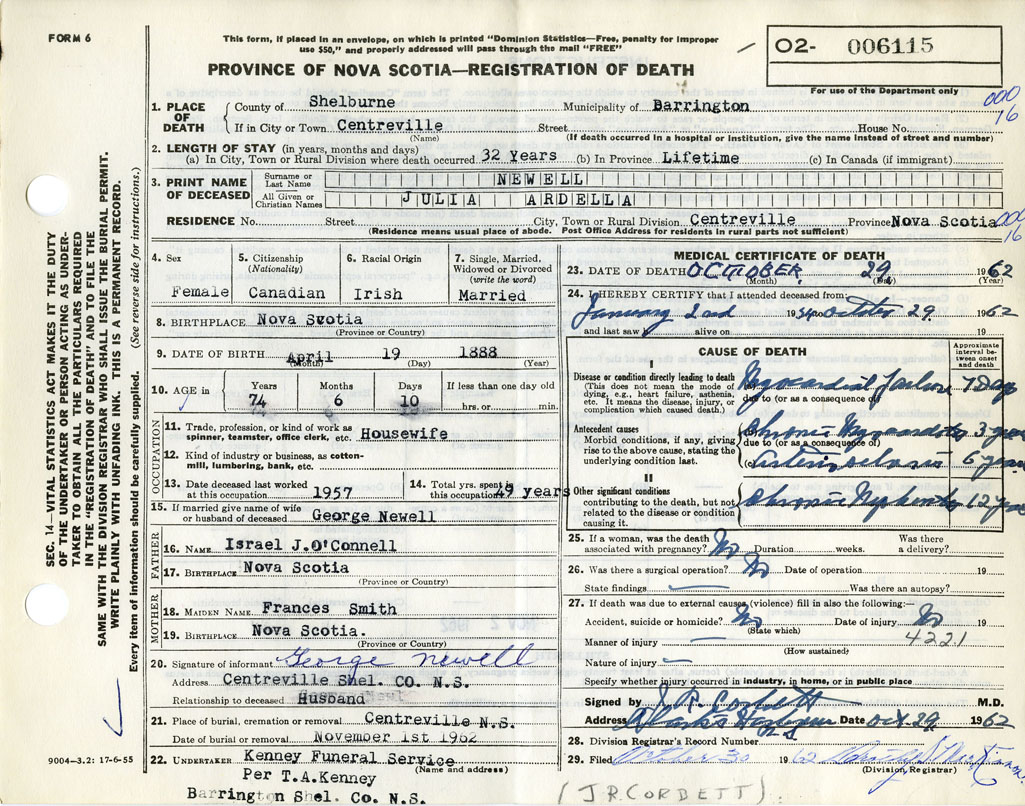 FORM 6
This form, if placed in an envelope, on which is printed "Dominion Statistics—Free, penalty for improper
use $50," and properly addressed will pass through the mail "FREE"
PROVINCE OF NOVA SCOTIA—REGISTRATION OF DEATH
O2- 006115
For use of the Department only
000
16
1. PLACE OF DEATH
County of Shelburne Municipality of Barrington
If in City or Town Centreville Street House No.
(Name) (If death occurred in a hospital or institution, give the name instead of street and number)
2. LENGTH OF STAY (in years, months and days)
(a) In City, Town or Rural Division where death occurred 32 Years (b) In Province Lifetime (c) In Canada (if immigrant)
3. PRINT NAME OF DECEASED
Surname or Last Name NEWELL
All Given or Christian Names JULIA ARDELLA
RESIDENCE No. Street City, Town or Rural Division Centreville Province Nova Scotia
000
16
(Residence means usual place of abode. Post Office Address for residents in rural parts not sufficient)
4. Sex
Female
5. Citizenship
(Nationality)
Canadian
6. Racial Origin
Irish
7. Single, Married,
Widowed or Divorced
(write the word)
Married
8. BIRTHPLACE Nova Scotia
(Province or Country)
9. DATE OF BIRTH April 19 1888
(Month) (Day) (Year)
10. AGE in
Years Months Days If less than one day old
74 6 10 hrs. or min.
OCCUPATION
11. Trade, profession, or kind of work as
spinner, teamster, office clerk, etc. Housewife
12. Kind of industry or business, as cotton-
mill, lumbering, bank, etc.
13. Date deceased last worked
at this occupation 1957
14. Total yrs. spent in
this occupation 49 years
15. If married give name of wife
or husband of deceased George Newell
FATHER
16. NAME Israel J.O'Connell
17. BIRTHPLACE Nova Scotia
(Province or Country)
MOTHER
18. MAIDEN NAME Frances Smith
19. BIRTHPLACE Nova Scotia.
(Province or Country)
20. Signature of informant George Newell
Address Centreville Shel. CO. N.S.
Relationship to deceased Husband
21. Place of burial, cremation or removal Centreville N.S.
Date of burial or removal November 1st 1962
22. UNDERTAKER Kenney Funeral Service
(Name and address)
Per T.A.Kenney
Barrington Shel. Co. N.S.
MEDICAL CERTIFICATE OF DEATH
23. DATE OF DEATH OCTOBER 29 1962
(Month) (Day) (Year)
24. I HEREBY CERTIFY that I attended deceased from:
January 2nd 1954 to October 29 1962
and last saw h alive on 19
CAUSE OF DEATH
Approximate
interval be-
tween onset
and death
I
Disease or condition directly leading to death
(This does not mean the mode of
dying, e.g., heart failure, asthenia,
etc. It means the disease, injury, or
complication which caused death.)
(a) Myocardial Failure 7 Days
due to (or as a consequence of)
Antecedent causes
Morbid conditions, if any, giving
rise to the above cause, stating the
underlying condition last.
(b) Chronic Myocarditis 3 years
due to (or as a consequence of)
(c) Arteriosclerosis 6 years
II
Other significant conditions
contributing to the death, but not
related to the disease or condition
causing it.
Chronic Nephritis 12 years
25. If a woman, was the death
associated with pregnancy? No Duration weeks. Was there
a delivery?
26. Was there a surgical operation? No Date of operation 19
State findings Was there an autopsy?
27. If death was due to external causes (violence) fill in also the following:—
Accident, suicide or homicide? No Date of injury No 19
(State which)
Manner of injury 4221
(How sustained)
Nature of injury
Specify whether injury occurred in industry, in home, or in public place
Signed by J. R. Corbett M.D.
Address Clark's Harbour N.S. Date Oct. 29 1962
28. Division Registrar's Record Number
29. Filed October 30 1962
(Division Registrar)
(J R CORBETT)
SEC. 14—VITAL STATISTICS ACT MAKES IT THE DUTY
OF THE UNDERTAKER OR PERSON ACTING AS UNDER-
TAKER TO OBTAIN ALL THE PARTICULARS REQUIRED
IN THE "REGISTRATION OF DEATH" AND TO FILE THE
SAME WITH THE DIVISION REGISTRAR WHO SHALL ISSUE THE BURIAL PERMIT.
WRITE PLAINLY WITH UNFADING INK. THIS IS A PERMANENT RECORD.
Every item of information should be carefully supplied. (See reverse side for instructions.)
9004-3.2: 17-6-55